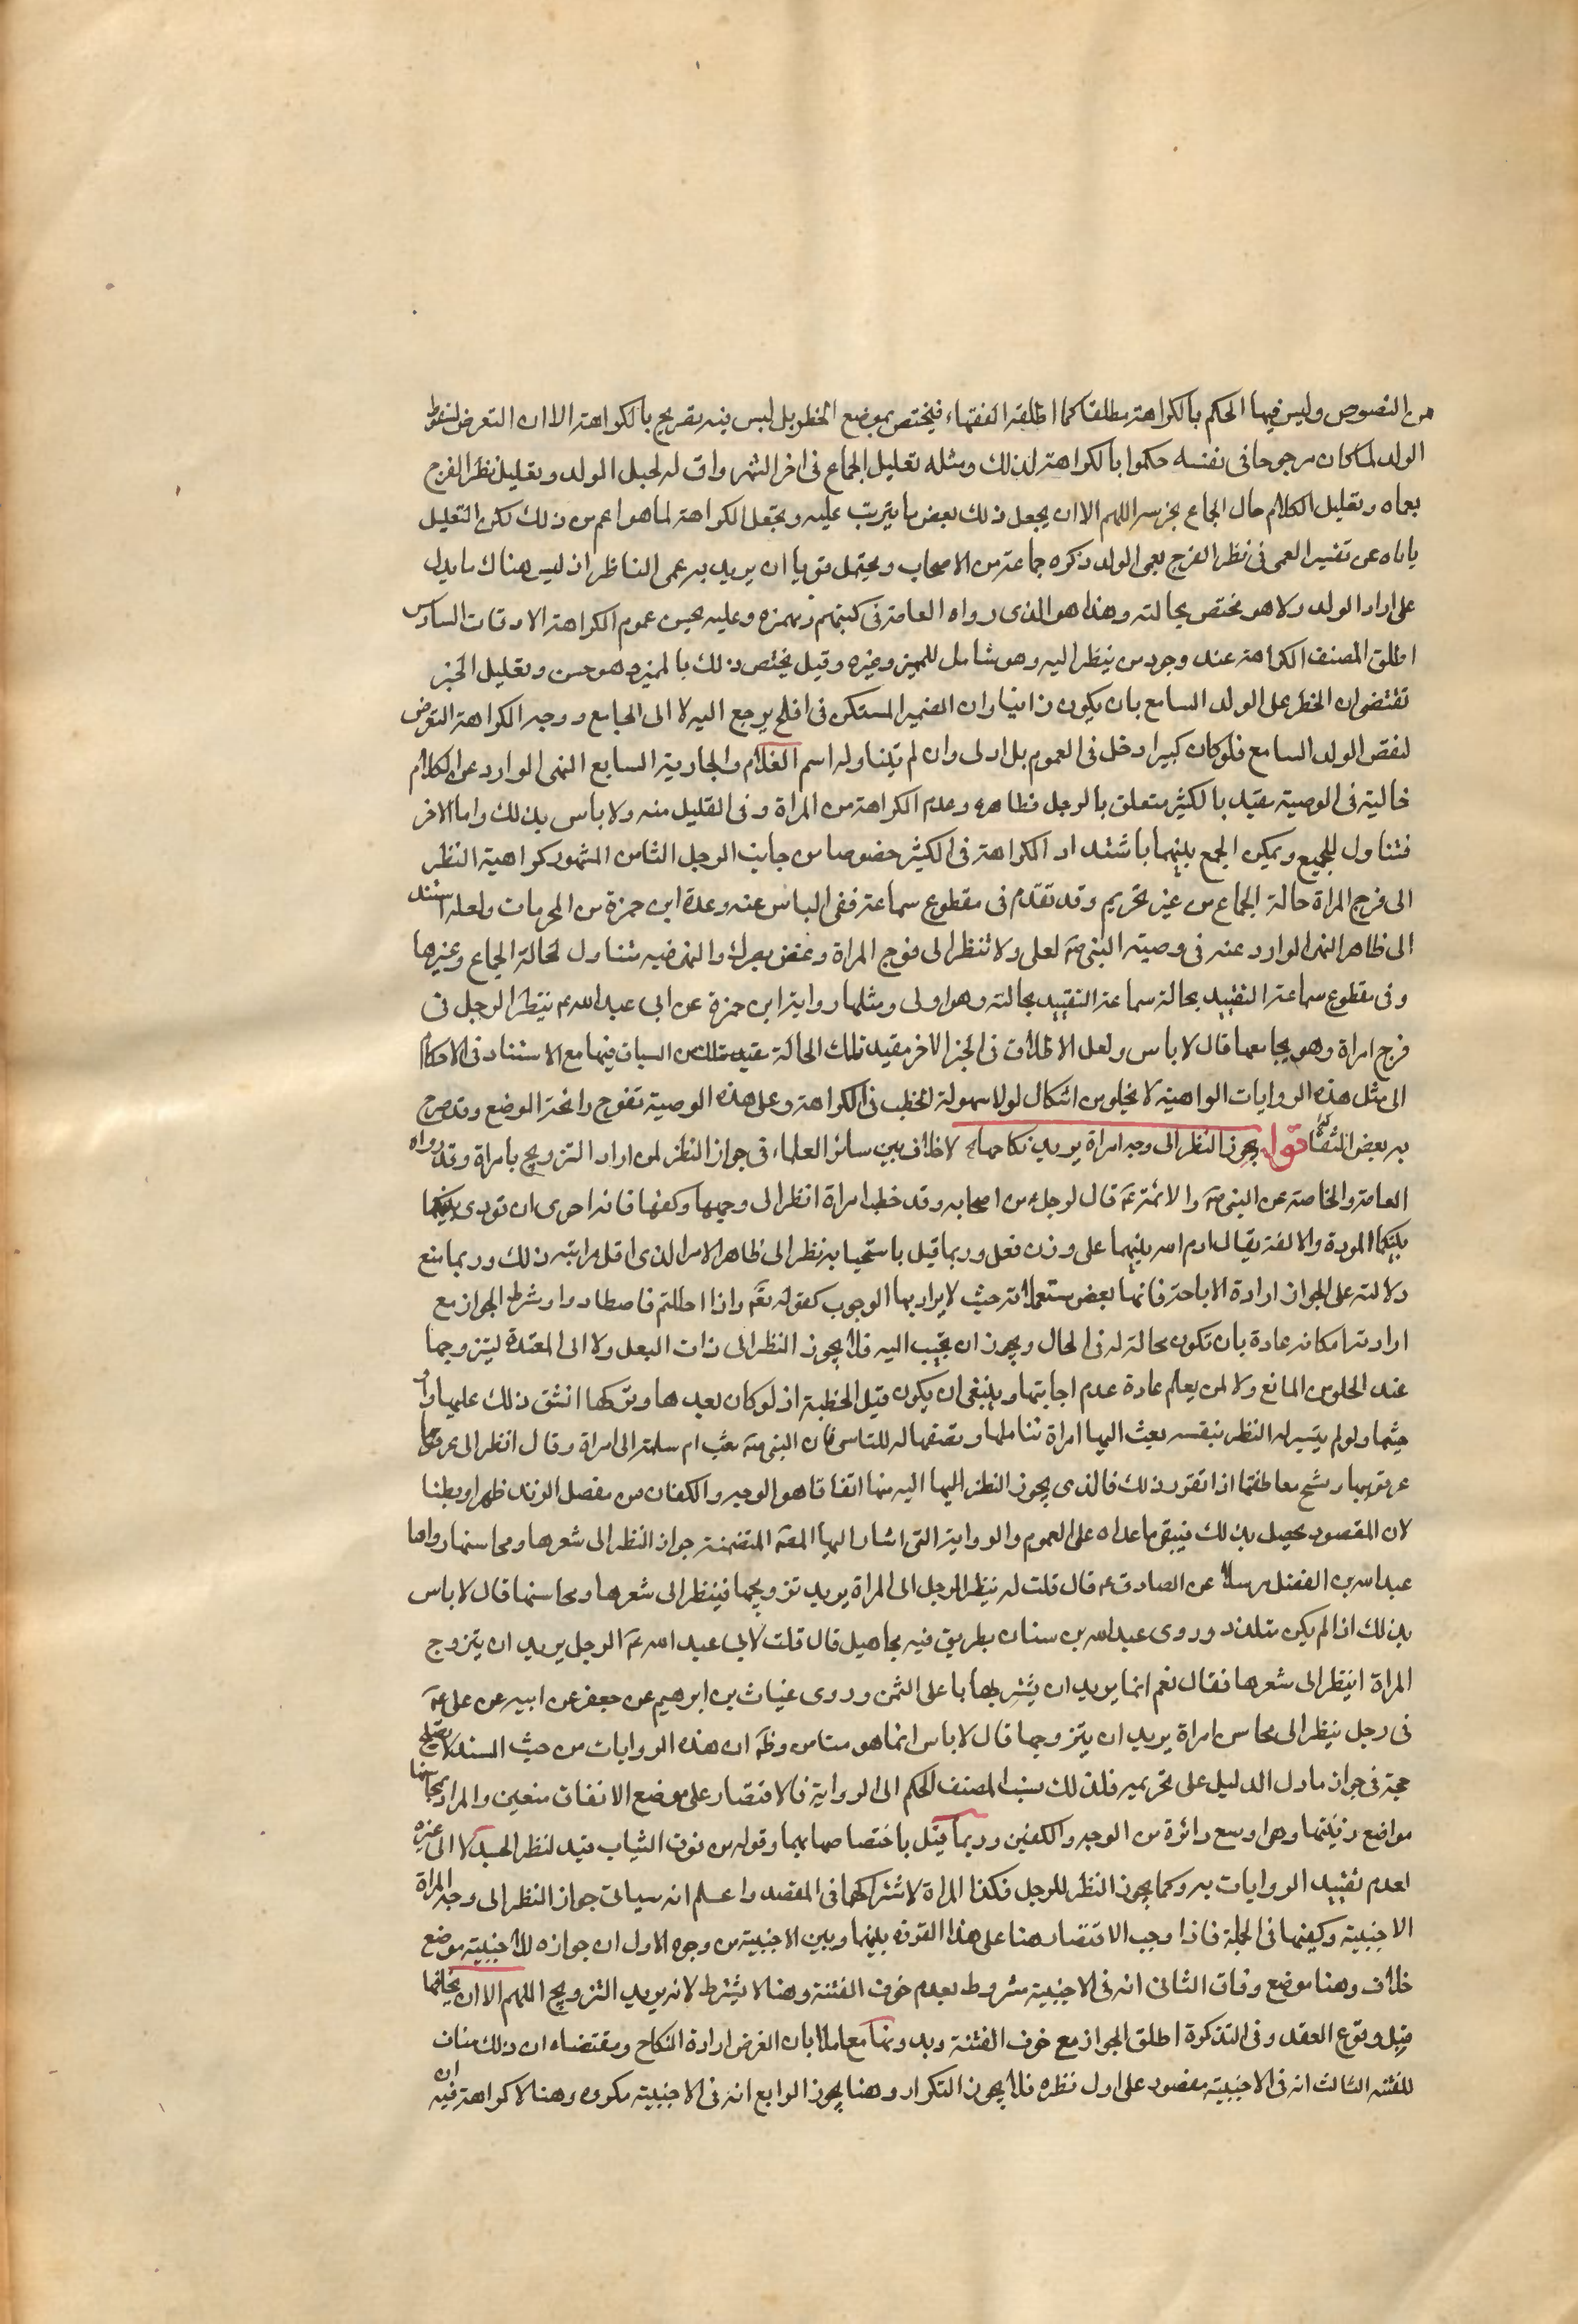 من النصوص وليس فيها الحكم بالكراهة مطلقا كما اطلقه الفقهاء فيختص بموضع الخطر بل ليس فيه تصريح بالكراهة الا ان التعرض لسقوط
الولد لما كان مرجوحا في نفسه حكموا بالكراهة لذلك ومثله تعليل الجماع في اخر الشهر واق له لحبل الولد وتعليل نظر الفرج
بعماه وتعليل الكلام حال الجماع بخرسه اللهم الا ان يجعل ذلك بعض ما يترتب عليه ويجعل الكراهة لما هو اعم من ذلك لكن التعليل
ياباه عن تفسير العمى في نظر الفرج بعمى الولد ذكره جماعة من الاصحاب ويحتمل قويا ان يريد به عمى الناظر اذ ليس هناك ما يدل
على اراد الولد ولا هو مختص بحالته وهذا هو الذي رواه العامة في كتبهم وعليه يحسن عموم الكراهة الاوقات السادس
اطلق المصنف الكراهة عند وجود من ينظر اليه وهو شامل للمميز وغيره وقيل يختص ذلك بالمميز وهو حسن وتعليل الخبر
تقتضي ان الخطر على الولد السامع بان يكون زانيا وان الضمير المستكن في افلح يرجع اليه لا الى الجامع ووجه الكراهة التعرض
لنقص الولد السامع فلو كان كبيرا دخل في العموم بل اولى وان لم يتناوله اسم الغلام والجارية السابع النهى الوارد عن الكلام
خالية في الوصية مقيد بالكثير متعلق بالرجل فظاهره وعدم الكراهة من المراة وفي القليل منه ولا باس بذلك واما الاخر
فتناول للجميع ويمكن الجمع بينهما باشتداد الكراهة في الكثير خصوصا من جانب الرجل الثامن المشهور كراهية النظر
الى فرج المراة حالة الجماع من غير تحريم وقد تقدم في مقطوع سماعة ففى الباس عنه وعده ابن حمزة من المحرمات ولعله استند
الى ظاهر النهى الوارد عنه في وصيته النبي ص لعلى ولا تنظر الى فرج المراة وغض بصرك والنهى فيه متناول لحالة الجماع وغيرها
وفي مقطوع سماعة التقييد بحالة سماعة التقييد بحالته وهو اولى ومثلها رواية ابن حمزة عن ابي عبد الله ع ينظر الرجل في
فرج امراة وهو يجامعها قال لا باس ولعل الاطلاق في الخبر الاخر مقيد تلك الحالة بقيد من السياق فيها مع الاستناد في الاحكام
الى مثل هذه الروايات الواهية لا يخلو من اشكال لولا سهولة الخطب في الكراهة وعلى هذه الوصية تفوح رائحة الوضع وقد صرح
به بعض الثقات قوله يجوز النظر الى وجه امراة يريد نكاحها لا خلاف بين سائر العلماء في جواز النظر لمن اراد التزويج بامراة وقد رواه
العامة والخاصة عن النبي ص والائمة ع قال لرجل من اصحابه وقد خطب امراة انظر الى وجهها وكفيها فانه احرى ان تودى بينكما
بينكما المودة والالفة يقال ادم الله بينهما على وزن فعل وربما قيل باستحبابه نظر الى ظاهر الامر الذي اقل مراتبه ذلك وربما منع
دلالته على الجواز ارادة الاباحة فانها بعض مستعملاته حيث لا يراد بها الوجوب كقوله تع واذا احللتم فاصطادوا وشرط الجواز مع
ارادته امكانه عادة بان تكون محالة له في الحال ويجوز ان يجيب اليه فلا يجوز النظر الى ذات البعل ولا الى المعتدة ليتزوجها
عند الخلو من المانع ولا لمن يعلم عادة عدم اجابتها وينبغي ان يكون قبل الخطبة اذ لو كان بعدها وتركها انشق ذلك عليها
حيثما ولو لم يتيسر له النظر بنفسه بعث اليها امراة تتاملها وتصفها له للتاسي فان النبي ص بعث ام سلمة الى امراة وقال انظر الى عرقوبها
عرقوبها وشم معاطفها اذا تقرر ذلك فالذي يجوز النظر اليها اليه منها اتفاقا هو الوجه والكفان من مفصل الزند ظهرا وبطنا
لان المقصود يحصل بذلك فيبقى ما عداه على العموم والرواية التي اشار اليها المص المتضمنة جواز النظر الى شعرها ومحاسنها رواها
عبد الله بن الفضل مرسلا عن الصادق ع قال قلت له ينظر الرجل الى المراة يريد تزويجها فينظر الى شعرها ومحاسنها قال لا باس
بذلك اذا لم يكن متلذذ وروى عبد الله بن سنان بطريق فيه مجاهيل قال قلت لابي عبد الله ع الرجل يريد ان يتزوج
المراة اينظر الى شعرها فقال نعم انما يريد ان يشتريها باعلى الثمن وروى غياث بن ابرهيم عن جعفر عن ابيه عن على ع
في رجل ينظر الى محاسن امراة يريد ان يتزوجها قال لا باس انما هو مستام وظ ان هذه الروايات من حيث السند لا يصلح
حجة في جواز ما دل الدليل على تحريمه فلذلك نسب المصنف الحكم الى الرواية فالاقتصار على موضع الاتفاق متعين والمراد بمحاسنها
مواضع زينتها وهو اوسع دائرة من الوجه والكفين وربما قيل باختصاصها بهما وقوله من فوق الثياب قيد لنظر الجسد لا الى غيره
لعدم تقييد الروايات به وكما يجوز النظر للرجل فكذا المراة لاشتراكهما في المقصد واعلم انه سياتي جواز النظر الى وجه المراة
الاجنبية وكفيها في الجملة فاذا وجب الاقتصار هنا على هذا الفرق بينها وبين الاجنبية من وجوه الاول ان جوازه للاجنبية موضع
خلاف وهنا موضع وفاق الثاني انه في الاجنبية مشروط بعدم خوف الفتنة وهنا لا يشترط لانه يريد التزويج اللهم الا ان يخافها
قبل وقوع العقد وفي التذكرة اطلق الجواز مع خوف الفتنة وبدونها معاملا بان الغرض ارادة النكاح ومقتضاه ان ذلك مناف
للفتنه الثالث انه في الاجنبية مقصور على اول نظره فلا يجوز التكرار وهنا يجوز الرابع انه في الاجنبية مكروه وهنا لا كراهة فيه ان